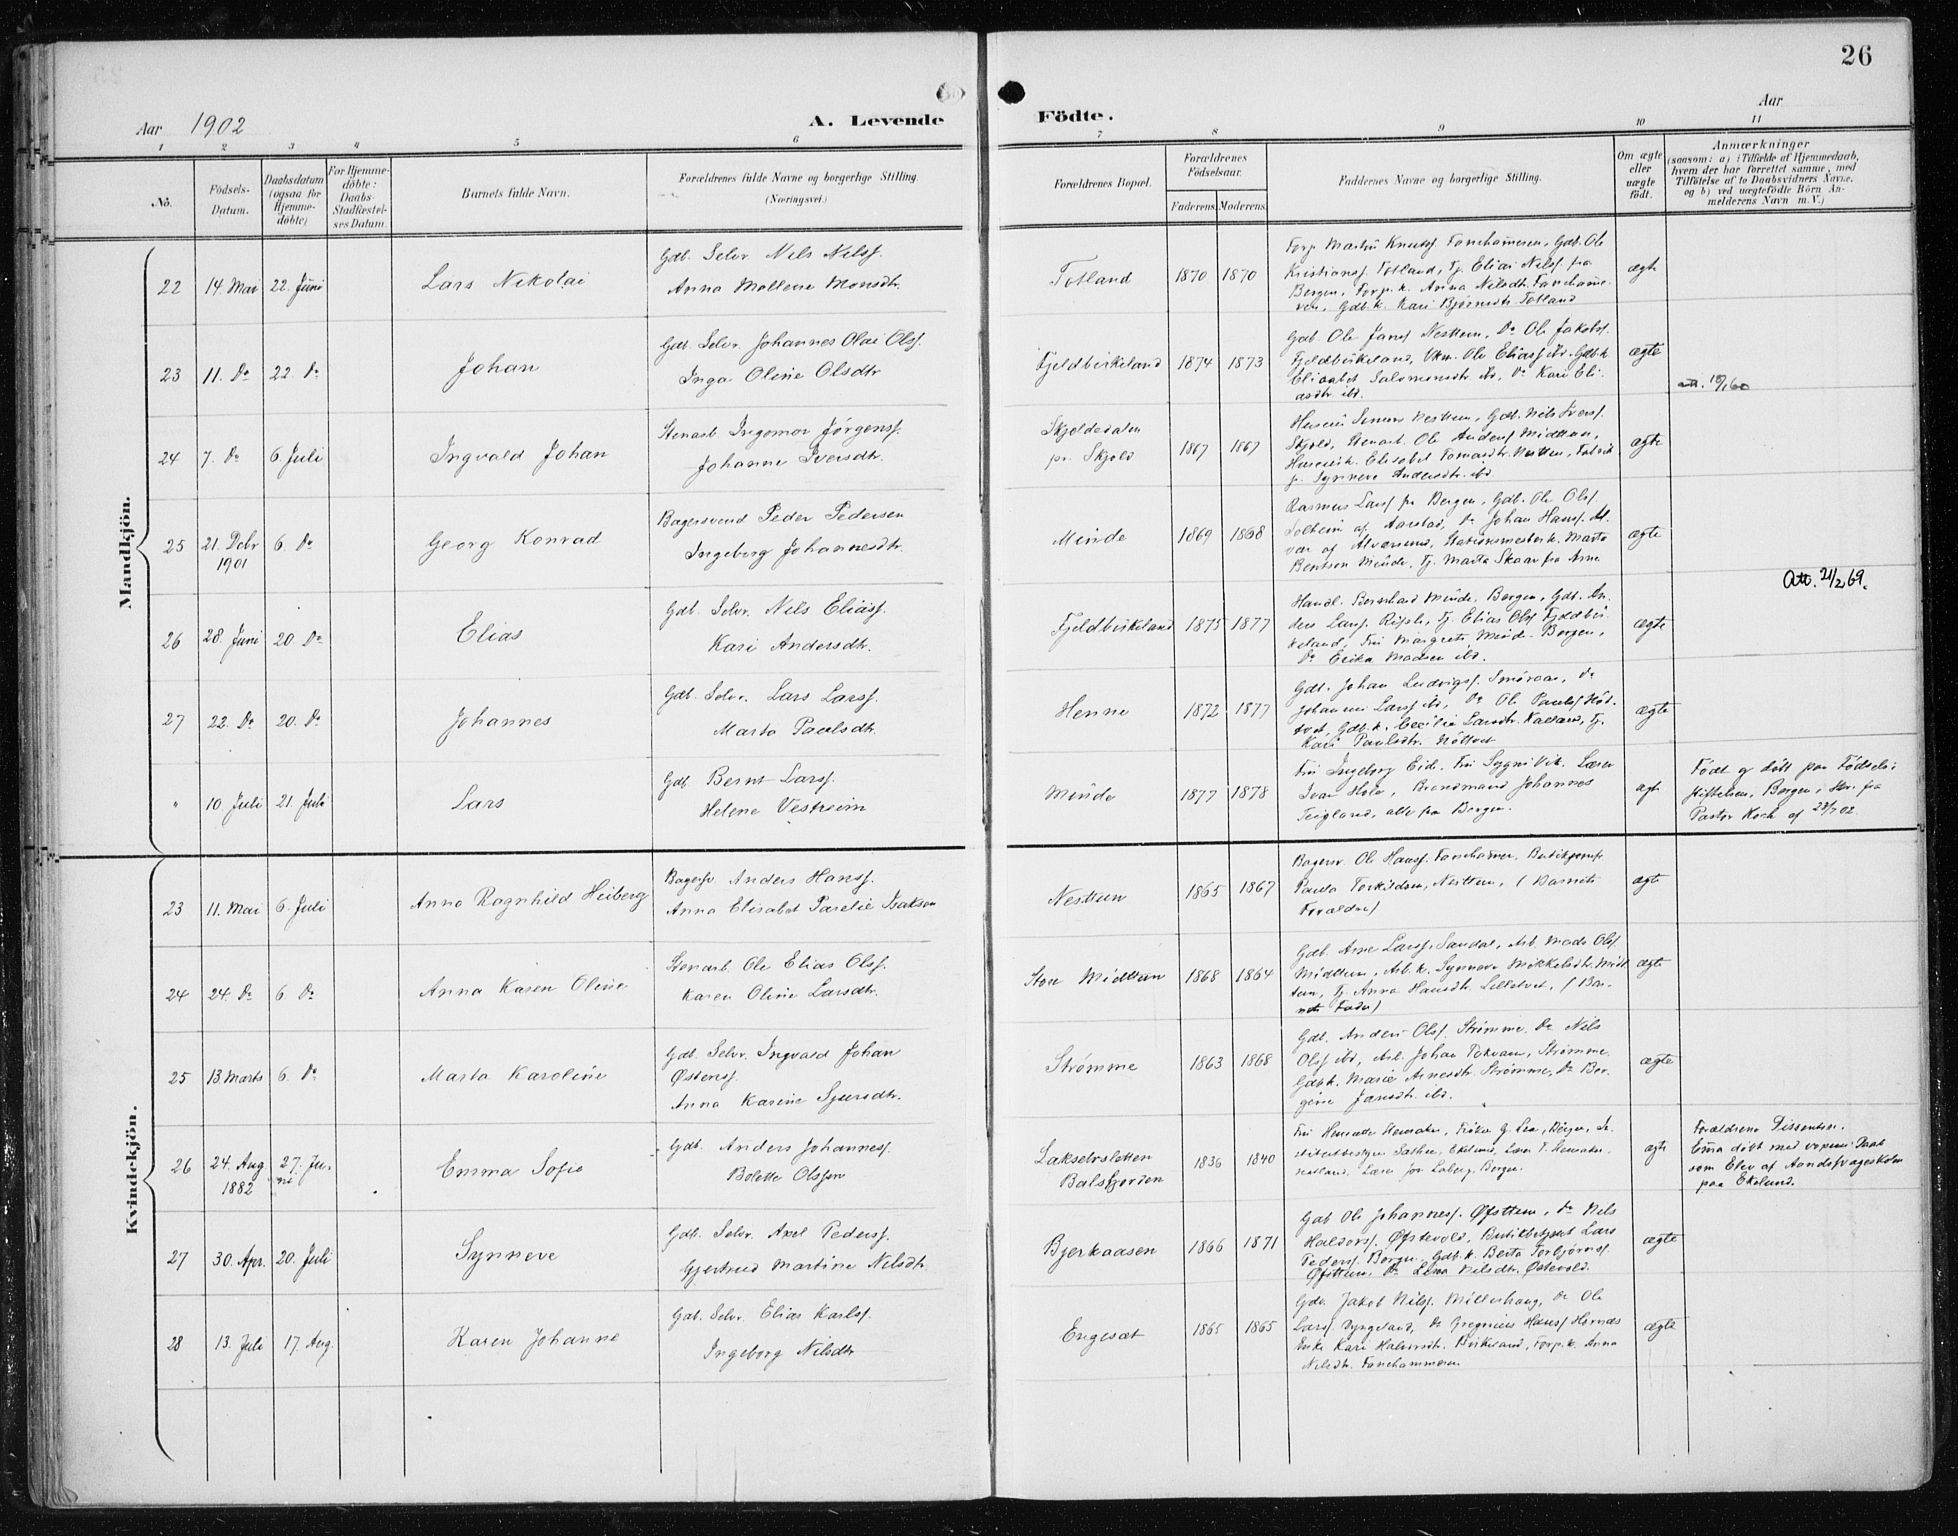 26
Aar 1902
A. Levende
Födte.
Aar
1 2 3 4 5 6 7 8 9 10 11
No.
Födsels-
Datum.
Daabsdatum
(ogsaa for
Hjemme-
döbte)
For Hjemme-
döbte:
Daabs-
Stadfæstel-
ses Datum.
Barnets fulde Navn.
Forældrenes fulde Navne og borgerlige Stilling.
(Næringsvei.)
Forældrenes Bopæl.
Forældrenes
Födselsaar.
Faderens. Moderens.
Faddernes Navne og borgerlige Stilling.
Om ægte
eller
uægte
födt.
Anmærkninger
(saasom: a) i Tilfælde af Hjemmedaab,
hvem der har forrettet samme, med
Tilföielse af to Daabsvidners Navne,
og b) ved uægtefödte Börn An-
melderens Navn m. V.)
Mandkjön.
22 14. Mai 22. Juni
Lars Nikolai
Gdb. Selv. Nils Nilss.
Anna Mallene Monsdtr.
Totland 1870 1870
Forp. Martin Knutss. Fanehammeren, Gdb. Ole
Kristianss. Totland, Tj. Elias Nilss. fra
Bergen, Forp.k. Anna Nilsdtr. Fanehamme-
ren, Gdb.k. Kari Bjørnsdtr. Totland
ægte
23 11. Do 22. Do
Johan
Gdb. Selv. Johannes Olai Olss.
Inga Oline Olsdtr
Fjeldbirkeland 1874 1873
Gdb. Ole Janss Nesttun, Do Ole Jakobss.
Fjeldbirkeland, Ole Eliass ibd. Gdb.k.
Elisabet Salomonsdtr. ibd, Do Kari Eli-
asdtr ibd.
ægte
att. 18/1 60
24 7. Do 6. Juli
Ingvald Johan
Stenarb Ingomar Jørgenss.
Johanne Iversdtr.
Skjoldedalen
pr. Skjold 1867 1867
Simon Nesttun, Gdb. Nils Iverss.
Skjold, Stenarb. Ole Anderss Midttun,
Elisabet Tomasdtr. Nesttun, Fabrik
p. Synneve Andersdtr. ibd.
ægte
25 21. Debr 6. Do
1901
Georg Konrad
Bagersvend Peder Pedersen
Ingeborg Johannesdtr.
Minde 1869 1868
Rasmus Larss fr Bergen, Gdb. Ole Olss.
Solheim af Aarstad, Do Johan Hanss. Al-
vær af Alværsund, Stationsmesterk. Marta
Bentsen Minde, Tj. Marta Skaar fra Arne
ægte
Att. 21/2 69.
26 28. Juni 20 Do
Elias
Gdb. Selv. Nils Eliass.
Kari Andersdtr.
Fjeldbirkeland 1875 1877
Handl. Bernhard Minde, Bergen, Gdb. An-
ders Larss. Rispl., Tj. Elias Olss Fjeldbir-
keland, Fru Margrete Minde Bergen,
Do Erika Madsen ibd.
ægte
27 22. Do 20. Do
Johannes
Gdb. Selv. Lars Larss.
Marta Paulsdtr.
Henne 1872 1877
Gdb. Johan Ludvigss. Smøraas, Do
Johannes Larss ibd, Do Ole Paulss Nöt-
tvet, Gdb.k. Cecilie Larsdtr. Kalland, Tj.
Kari Paulsdtr. Nöttvet
ægte
" 10 Juli 21. Juli
Lars
Gdb. Bernt Larss.
Helene Vestreim
Minde 1877 1878
Fru Ingeborg Eid. Fru Vik. Lærer
Ivar Hole, Brandmand Johannes
Teigland, alle fra Bergen.
ægte
Födt og döbt paa Fødsels-
stiftelsen, Bergen i Skr. fra
Pastor Koch af 23/7 02.
Kvindekjön.
23 11. Mai 6. Juli
Anna Ragnhild Heiberg
Bagersv Anders Hanss.
Anna Elisabet Parelie Isaksen
Nesttun 1865 1867
Bagersv. Ole Hanss. Fanehammer.
Paula Torkildsen, Nesttun, (Barnets
Forældre)
ægte
24 24. Do 6. Do
Anna Karen Oline
Stenarb. Ole Elias Olss.
Karen Oline Larsdtr.
Store Midttun 1868 1864
Gdb. Arne Larss, Sandal, Arb. Mads Olss
Midttun, Arb.k. Synneve Mikkelsdtr. Midt-
tun, Tj. Anna Hansdtr. Lilletvet, (Bar-
nets Fader)
ægte
25 13. Marts 6. Do
Marta Karoline
Gdb. Selv. Ingvald Johan
Østenss.
Anna Karine Sjursdtr.
Strømme 1863 1868
Gdb. Anders Olss. Strømme. Do Nils
Olss ibd, Arb. Johan Tokvam, Strømme.
Gdb.k. Marie Arnesdtr. Strømme, Do Ber-
gine Jansdtr. ibd.
ægte
26 24. Aug 27. Ju-
1882 ni
Emma Sofie
Gdb. Anders Johanness.
Bolette Olsson
Lakselvsletten
Balsfjorden 1836 1840
ægte
Forældrene Dissentere.
Ema döbt med voxen Daab
som Elev af Aandssvageskolen
paa Ekelund.
27 30. Apr. 20. Juli
Synneve
Gdb. Selv. Axel Pederss.
Gjertrud Martine Nilsdtr.
Bjerkaasen 1866 1871
Gdb Ole Johanness. Øfsttun, Do Nils
Haldorss. Øfstevold, Butikbetjent Lars
Pederss. Bergen, Gdb.k. Berta Torbjørnss.
Øfsttun, Do Lena Nilsdtr. Østevold.
ægte
28 13. Juli 17. Aug.
Karen Johanne
Gdb. Selv. Elias Karlss.
Ingeborg Nilsdtr
Engesæt 1865 1865
Gdb. Jakob Nilss. Millerhaug, Do Ole
Larss. Dyngeland, Do Hanss Hornæs
Enke Kari Halvorsdtr. Birkeland, Forp.k. Anna
Nilsdtr. Fanehammeren.
ægte